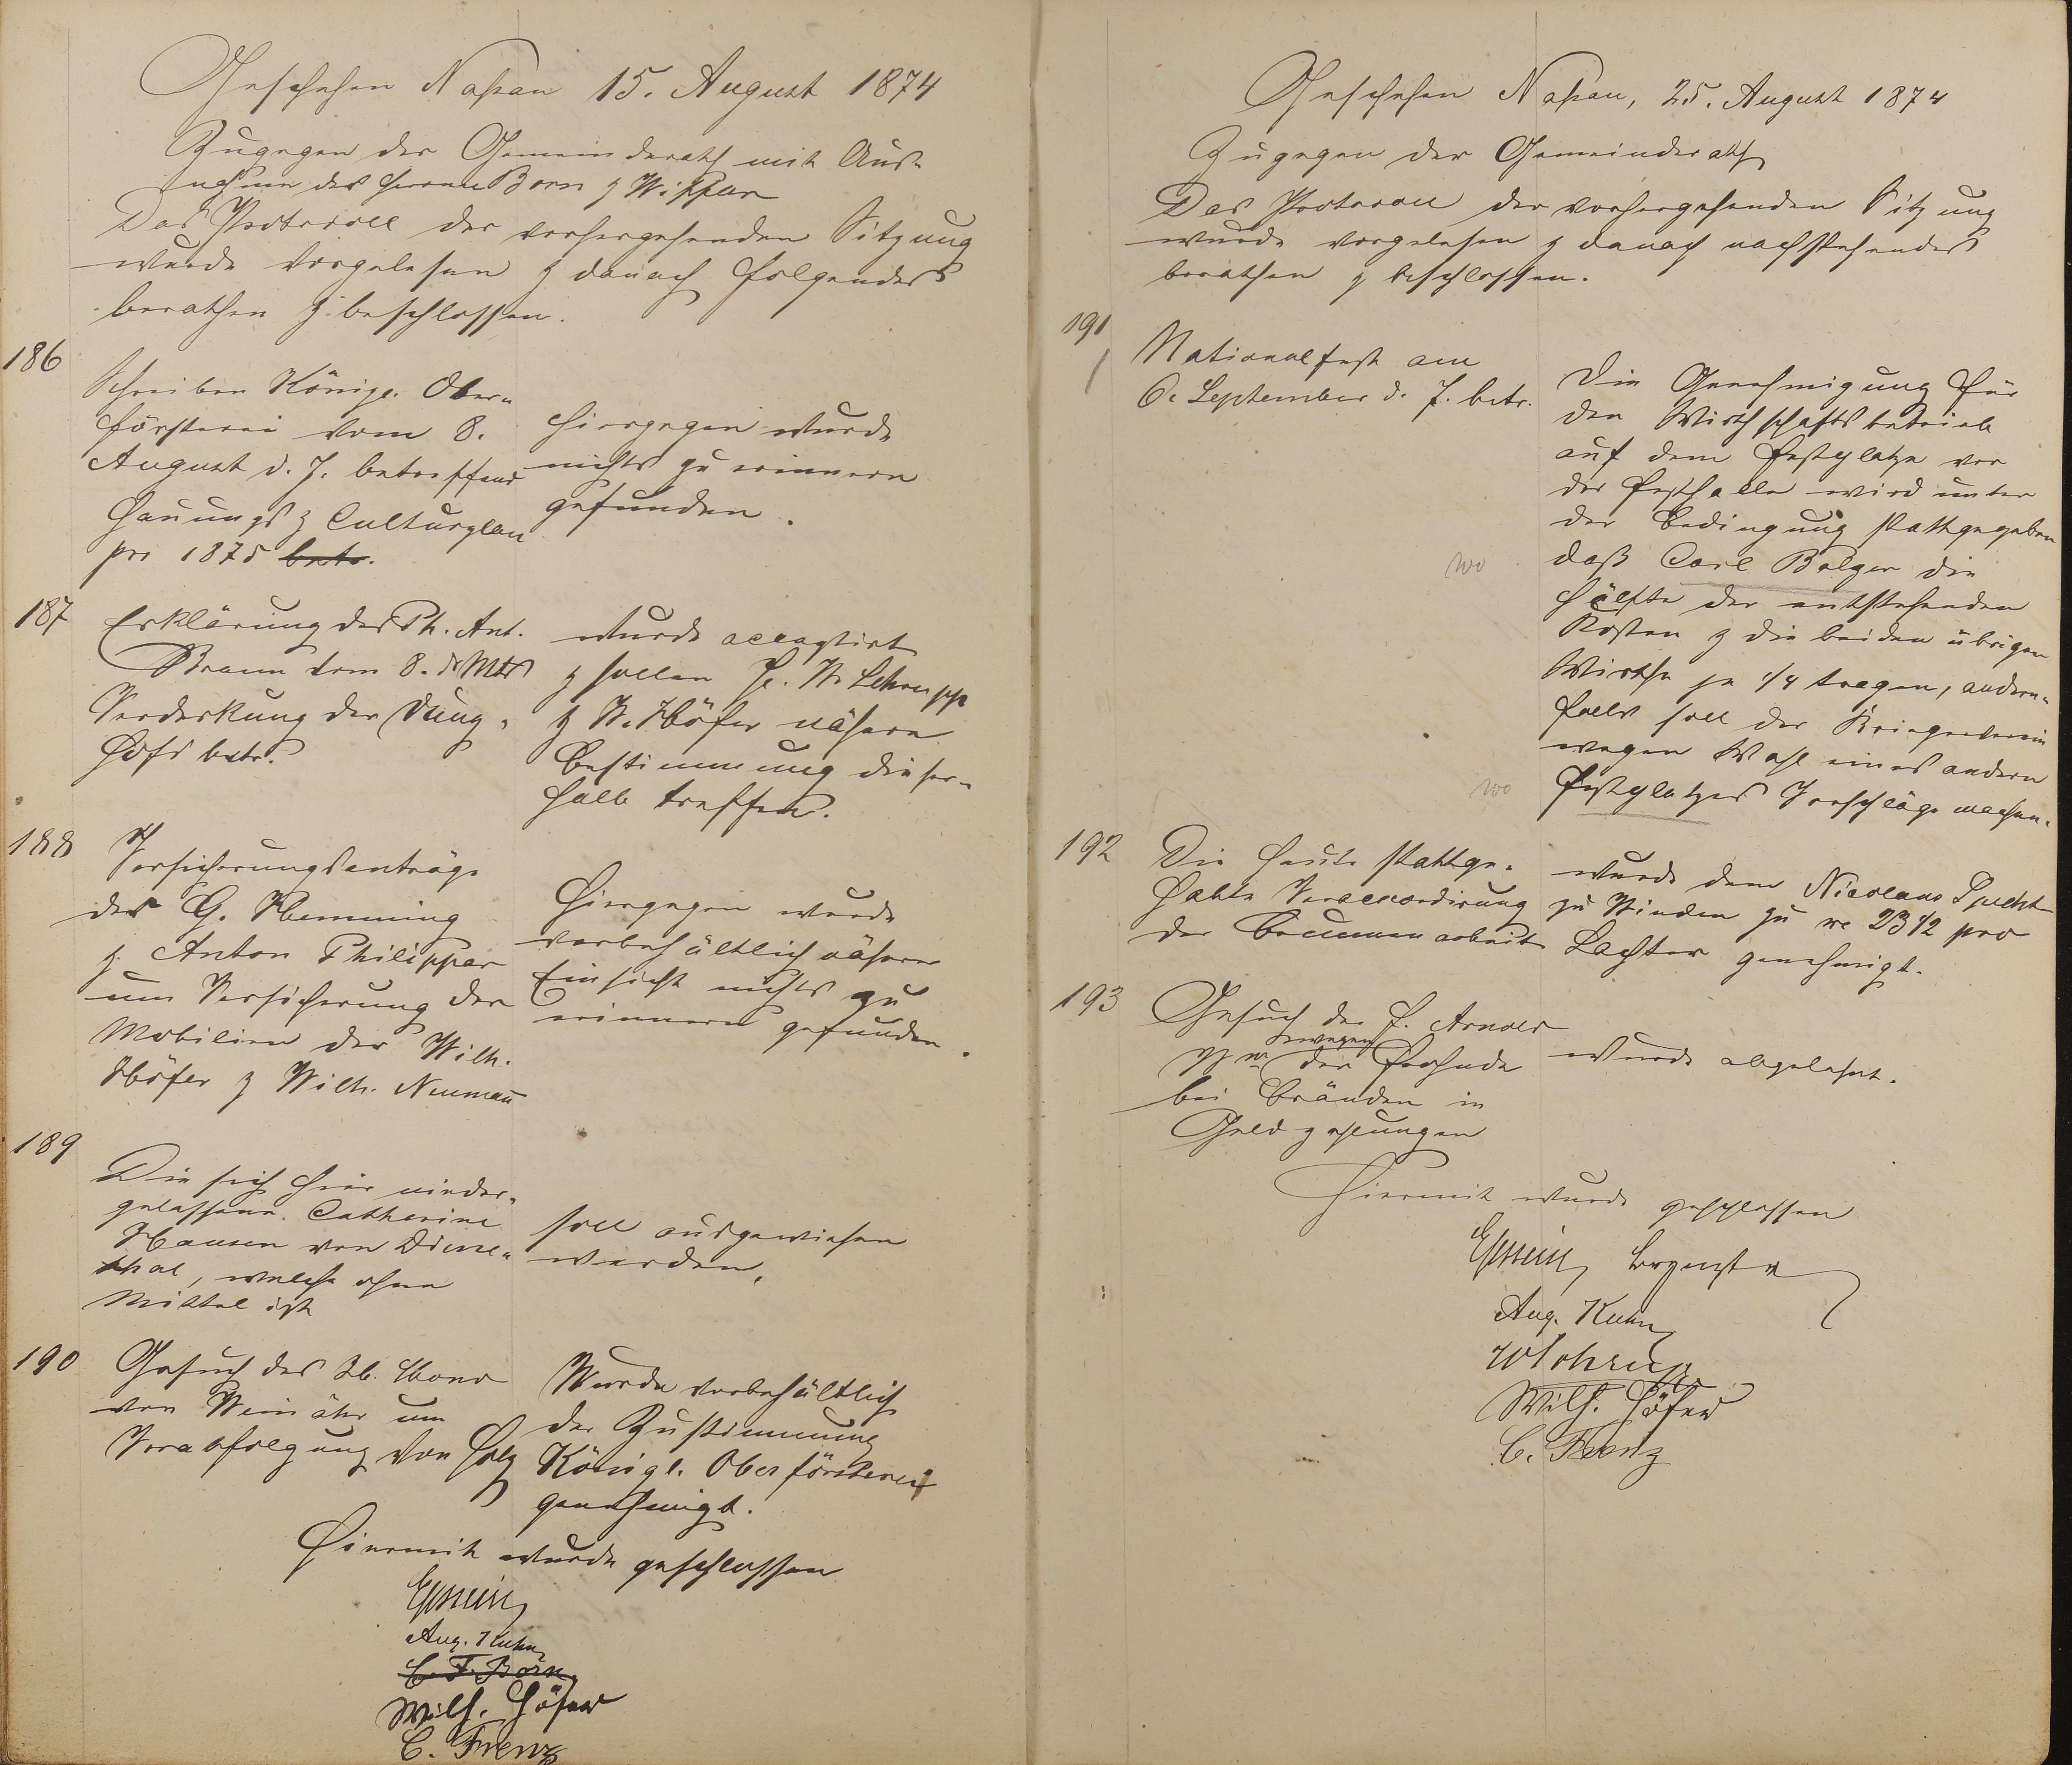 Geschehen Naßau 15. August 1874
Zugegen der Gemeinderath mit Aus-
nahme der Herren Born & Wißfar
Das Protocoll der vorhergehenden Sitzung
wurde vorgelesen & danach folgendes
berathen & beschlossen.
186
Schreiben Königl. Ober-
försterei vom 8.
August d. J. betreffend
Hauungs & Culturplan
pro 1875 betr.
Hiergegen wurde
nichts zu erinnern
gefunden.
187
Erklärung des Ph. Ant.
Braun vom 8. d. Mts
Verdeckung der Dung-
höfe betr.
wurde acceptirt
& sollen H. W. Schrupp
& W. Höfer nähere
Bestimmung dieser-
halb treffen.
188
Versicherungsanträge
des G. Hemming
& Anton Philippar
um Versicherung der
Mobilien der Wilh.
Höfer & Wilh. Neumann
Hiergegen wurde
vorbehältlich näherer
Einsicht nichts zu
erinnern gefunden.
189
Die sich hier nieder-
gelassene Catharine
Hansen von Diene-
thal, welche ohne
Mittel ist
soll ausgewiesen
werden.
190
Gesuch des
von Weinähr um
Verabfolgung von Holz
Wurde vorbehältlich
der Zustimmung
Königl. Oberförsterei
genehmigt.
Hiermit wurde geschlossen
Aug. Kuhn
C. F. Born
Wilh. Höfer
C. Frenz
Geschehen Naßau, 25. August 1874
Zugegen der Gemeinderath
Das Protocoll der vorhergehenden Sitzung
wurde vorgelesen & danach nachstehendes
berathen & beschlossen.
191
Nationalfest am
6. September d. J. betr.
Die Genehmigung für
den Wirthschaftsbetrieb
auf dem Festplatze vor
der Festhalle wird unter
der Bedingung stattgegeben
daß Carl Balzer die
Hälfte der entstehenden
Kosten & die beiden übrigen
Wirthe je 1/4 tragen, andern-
falls soll der Kriegerverein
wegen Wahl eines andern
Festplatzes Vorschläge machen.
192
Die heute stattge-
habte Veraccordirung
der Brunnenarbeit
wurde dem Nicolaus Specht
zu Winden zu 23 1/2 pro
Lachter genehmigt.
193
Gesuch des J. Arnold
wegen
der Frohnde
bei Bränden in
Geldzahlungen
wurde abgelehnt.
Hiermit wurde geschlossen
Aug. Kuhn
W Schrupp
Wilh. Höfer
C. Frenz